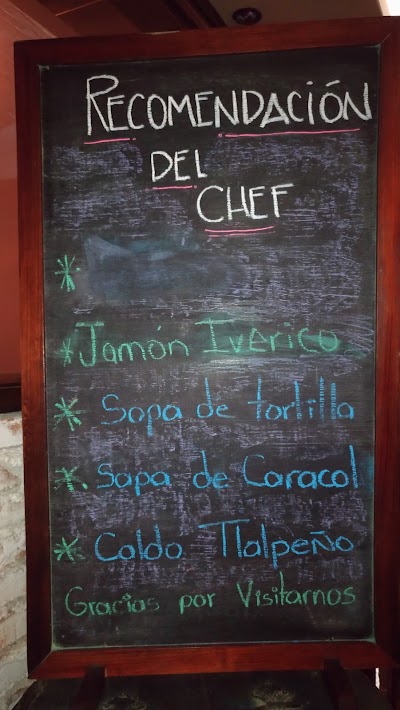 RECOMENDACIÓN
DEL
CHEF
*
* Jamón IVErico
* Sopa de tortilla
* Sopa de Caracol
* Caldo Tlalpeño
Gracias por Visitarnos